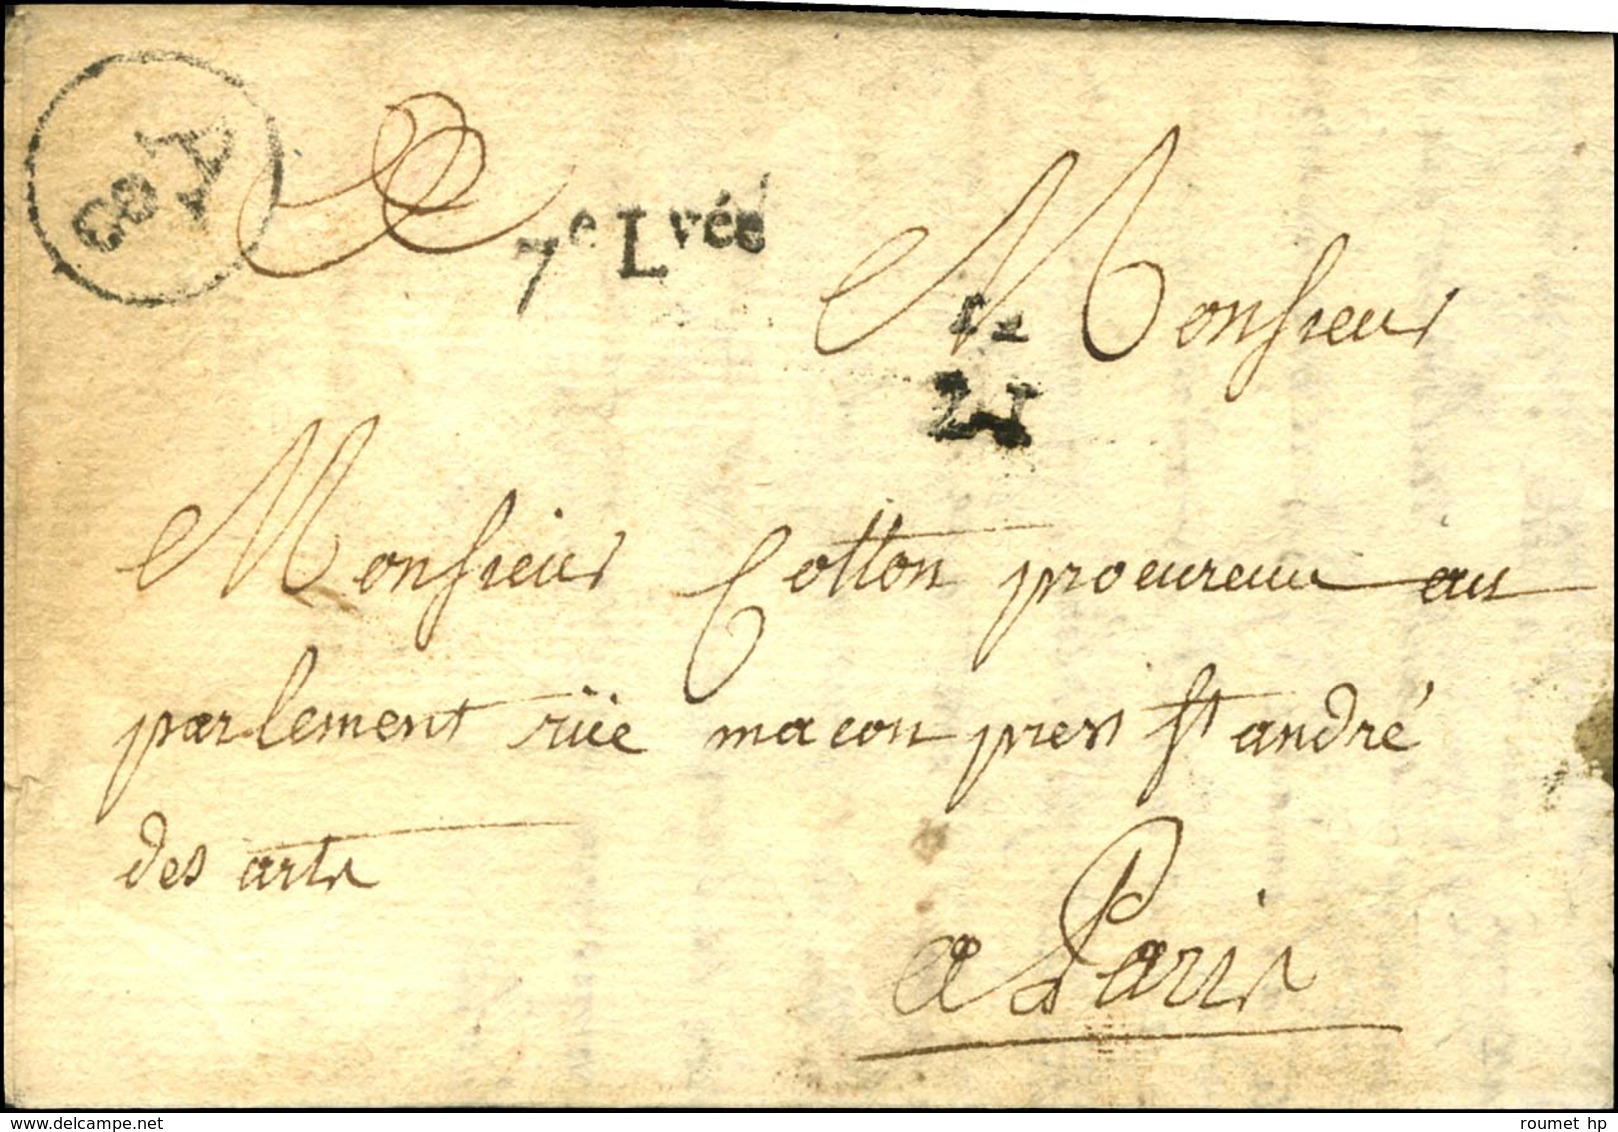 A
7e Lvée
Monsieur
Monsieur Cotton procureur au
parlement rüe macon pres st andré
des arts
a Paris
roumet hp